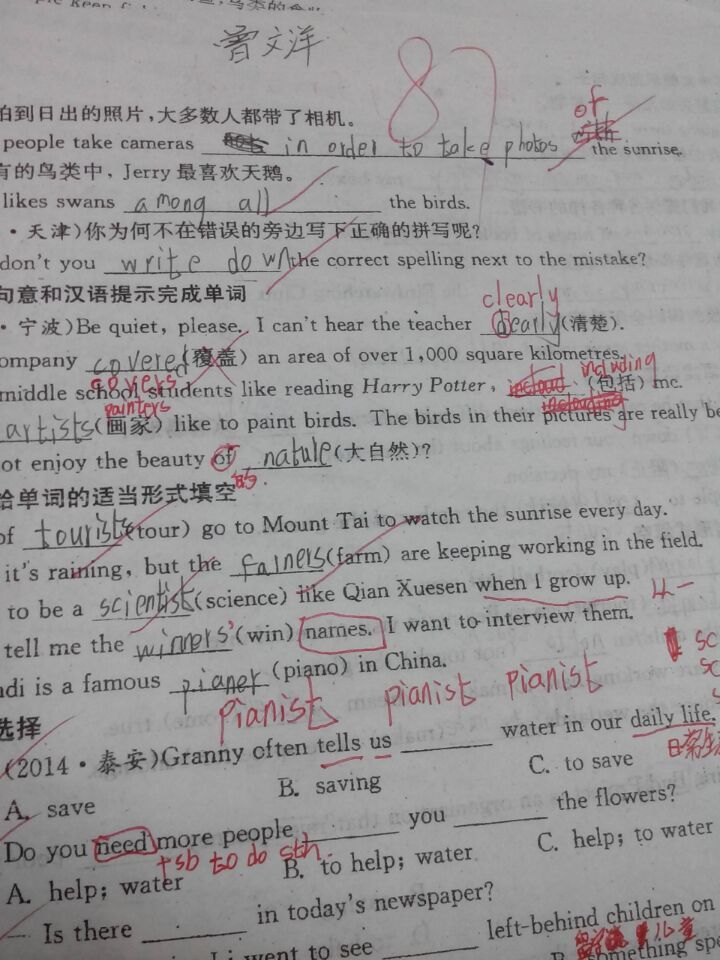 曾文洋
87
拍到日出的照片,大多数人都带了相机。
of
people take cameras in order to take photos the sunrise.
有的鸟类中,Jerry最喜欢天鹅。
likes swans among all the birds.
·天津)你为何不在错误的旁边写下正确的拼写呢?
don't you write down the correct spelling next to the mistake?
句意和汉语提示完成单词
clearly
·宁波)Be quiet, please. I can't hear the teacher dearly(清楚).
ompany covered(覆盖) an area of over 1,000 square kilometres.
covers including
middle school students like reading Harry Potter, (包括) me.
painters
artists(画家) like to paint birds. The birds in their pictures are really be
ot enjoy the beauty of natule(大自然)?
的.
给单词的适当形式填空
of tourists(tour) go to Mount Tai to watch the sunrise every day.
it's raining, but the famers(farm) are keeping working in the field.
to be a scientist(science) like Qian Xuesen when I grow up.
tell me the winners'(win) names. I want to interview them.
ndi is a famous pianer(piano) in China.
pianist pianist pianist
选择
(2014·泰安)Granny often tells us ______ water in our daily life.
日常生
A. save B. saving C. to save
Do you need more people ______ you ______ the flowers?
+sb to do sth.
A. help; water B. to help; water C. help; to water
— Is there ______ in today's newspaper?
I went to see ______ left-behind children on
儿童
B. something spe